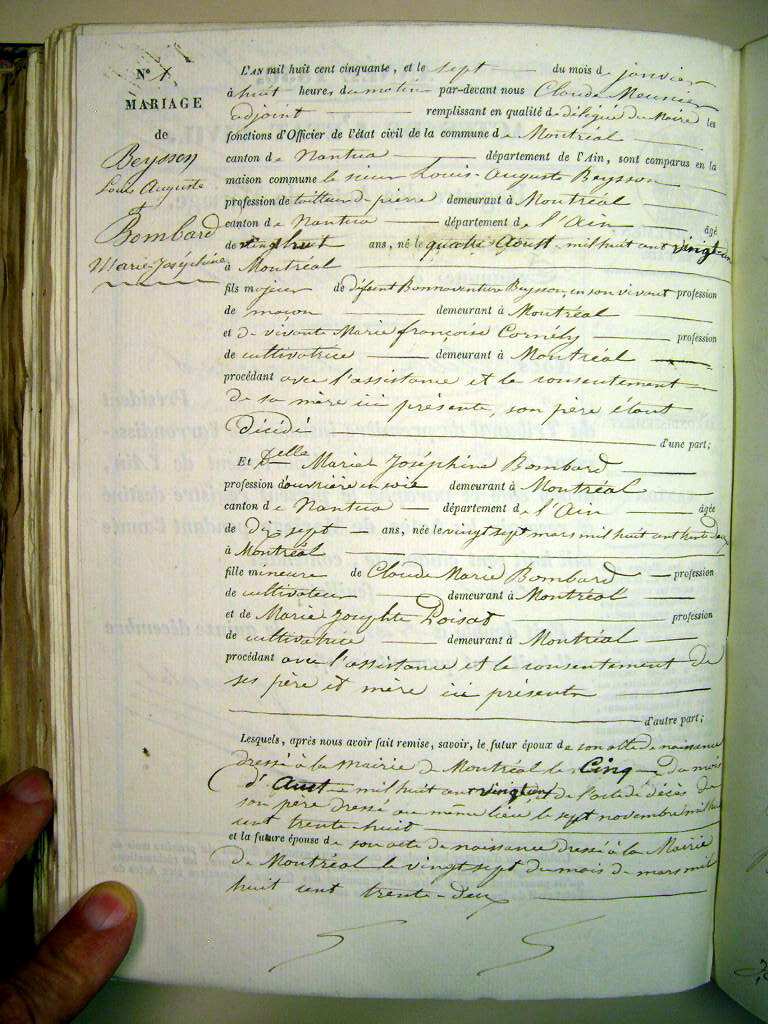 N° 1
MARIAGE
de
Beysson
Louis Auguste
&
Bombard
Marie-Joséphine
L'AN mil huit cent cinquante, et le sept du mois de janvier
à huit heures du matin par-devant nous Claude Meunier
adjoint remplissant en qualité de délégué du Maire les
fonctions d'Officier de l'état civil de la commune de Montréal
canton de Nantua département de l'Ain, sont comparus en la
maison commune le sieur Louis-Auguste Beysson
profession de tailleur de pierre demeurant à Montréal
canton de Nantua département de l'Ain âgé
de vingt huit ans, né le quatre Aoust mil huit cent vingt un
à Montréal
fils majeur de défunt Bonnaventure Beysson, en son vivant profession
de maçon demeurant à Montréal
et de vivante Marie françoise Cornély profession
de cultivatrice demeurant à Montréal
procédant avec l'assistance et le consentement
de sa mère ici présente, son père étant
décédé d'une part;
Et Delle Marie Joséphine Bombard
profession d'ouvrière en soie demeurant à Montréal
canton de Nantua département de l'Ain âgée
de dix sept ans, née le vingt sept mars mil huit cent trente deux
à Montréal
fille mineure de Claude Marie Bombard profession
de cultivateur demeurant à Montréal
et de Marie Josephte Poisat profession
de cultivatrice demeurant à Montréal
procédant avec l'assistance et le consentement de
ses père et mère ici présents
d'autre part;
Lesquels, après nous avoir fait remise, savoir, le futur époux de son acte de naissance
dressé à la Mairie de Montréal le Cinq du mois
d'Aout mil huit cent vingt un & de l'acte de décès de
son père dressé au même lieu le sept novembre mil huit
cent trente huit
et la future épouse de son acte de naissance dressé à la Mairie
de Montréal le vingt sept du mois de mars mil
huit cent trente-deux